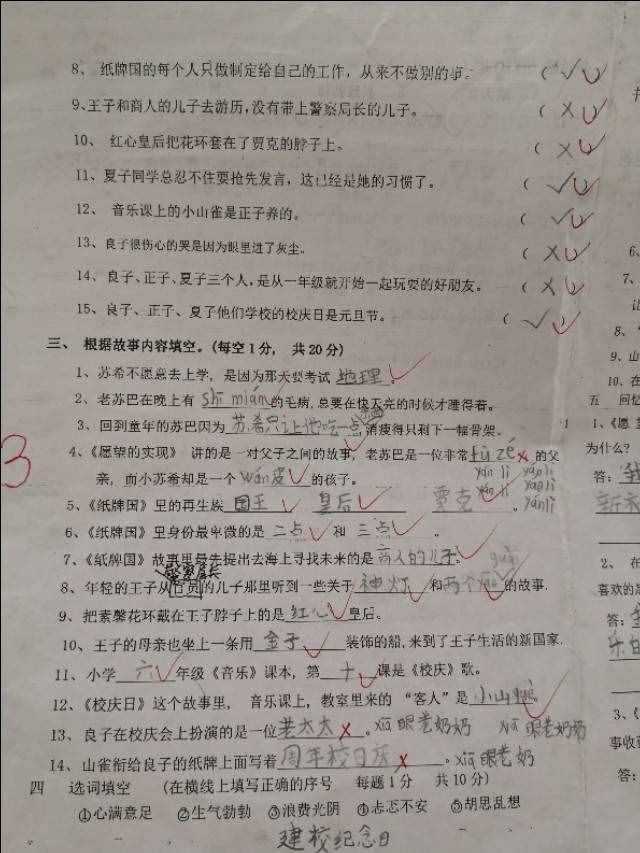 8、 纸牌国的每个人只做制定给自己的工作，从来不做别的事。 （ √ ）
9、王子和商人的儿子去游历，没有带上警察局长的儿子。 （ × ）
10、 红心皇后把花环套在了贾克的脖子上。 （ × ）
11、夏子同学总忍不住要抢先发言，这已经是她的习惯了。 （ √ ）
12、 音乐课上的小山雀是正子养的。 （ √ ）
13、良子很伤心的哭是因为眼里进了灰尘。 （ × ）
14、良子、正子、夏子三个人，是从一年级就开始一起玩耍的好朋友。 （ × ）
15、良子、正子、夏子他们学校的校庆日是元旦节。 （ √ ）
三、 根据故事内容填空。(每空1分， 共20分)
1、苏希不愿意去上学，是因为那天要考试 地理 。
2、老苏巴在晚上有 shī mián 的毛病,总要在快天亮的时候才睡得着。
3、回到童年的苏巴因为 苏希只让他吃一点 消瘦得只剩下一幅骨架。
4、《愿望的实现》 讲的是一对父子之间的故事，老苏巴是一位非常 fù zé × 的父
亲，而小苏希却是一个 wán皮 的孩子。
yán lì yán lì
yán lì yán lì
yán lì
5、《纸牌国》里的再生族 国王 皇后 贾克 。
6、《纸牌国》里身份最卑微的是 二点 和 三点 。
7、《纸牌国》故事里最先提出去海上寻找未来的是 商人的儿子 。
警察局长
8、年轻的王子从 的儿子那里听到一些关于 神灯 和 两个 的故事.
9、把素馨花环戴在王子脖子上的是 红心 皇后。
10、王子的母亲也坐上一条用 金子 装饰的船,来到了王子生活的新国家.
11、小学 六 年级《音乐》课本，第 十 课是《校庆》歌。
12、《校庆日》这个故事里， 音乐课上，教室里来的 “客人”是 小山
13、良子在校庆会上扮演的是一位 老太太 × 。xiā 眼老奶奶 xiā 眼老奶奶
14、山雀衔给良子的纸牌上面写着 周年校日庆 × 。xiā 眼老奶
四 选词填空 (在横线上填写正确的序号 每题1分 共10分)
①心满意足 ②生气勃勃 ③浪费光阴 ④忐忑不安 ⑤胡思乱想
建校纪念日
6、
7、
8、
9、山
10、在
五 回忆
1、《愿
为什么？
答：
2、 在
喜欢的是
答：
3、《
事收
答：